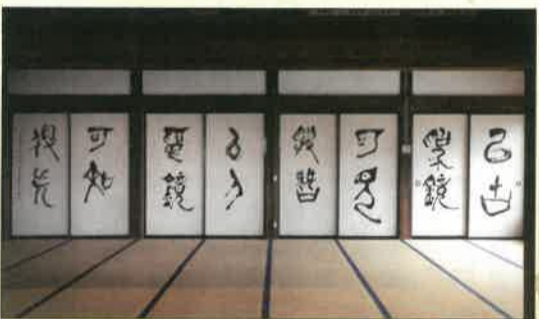 以古
為鏡
可見
興替
以人
為鏡
可知
得失